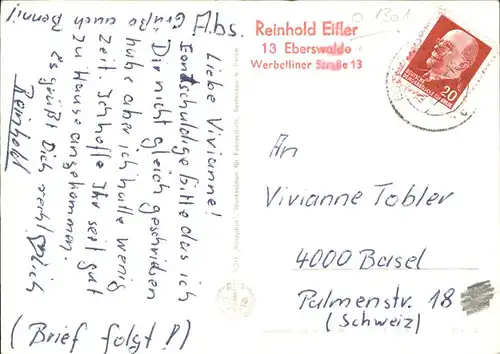 Abs.
Reinhold Eifler
13 Eberswalde
Werbelliner Straße 13
Liebe Vivianne!
Entschuldige bitte das ich
Dir nicht gleich geschrieben
habe aber ich hatte wenig
Zeit. Ich hoffe Ihr seit gut
zu Hause angekommen.
Es grüßt Dich recht herzlich
Reinhold
Grüße auch
Benni!
(Brief folgt!)
20
An
Vivianne Tobler
4000 Basel
Palmenstr. 18
(Schweiz)